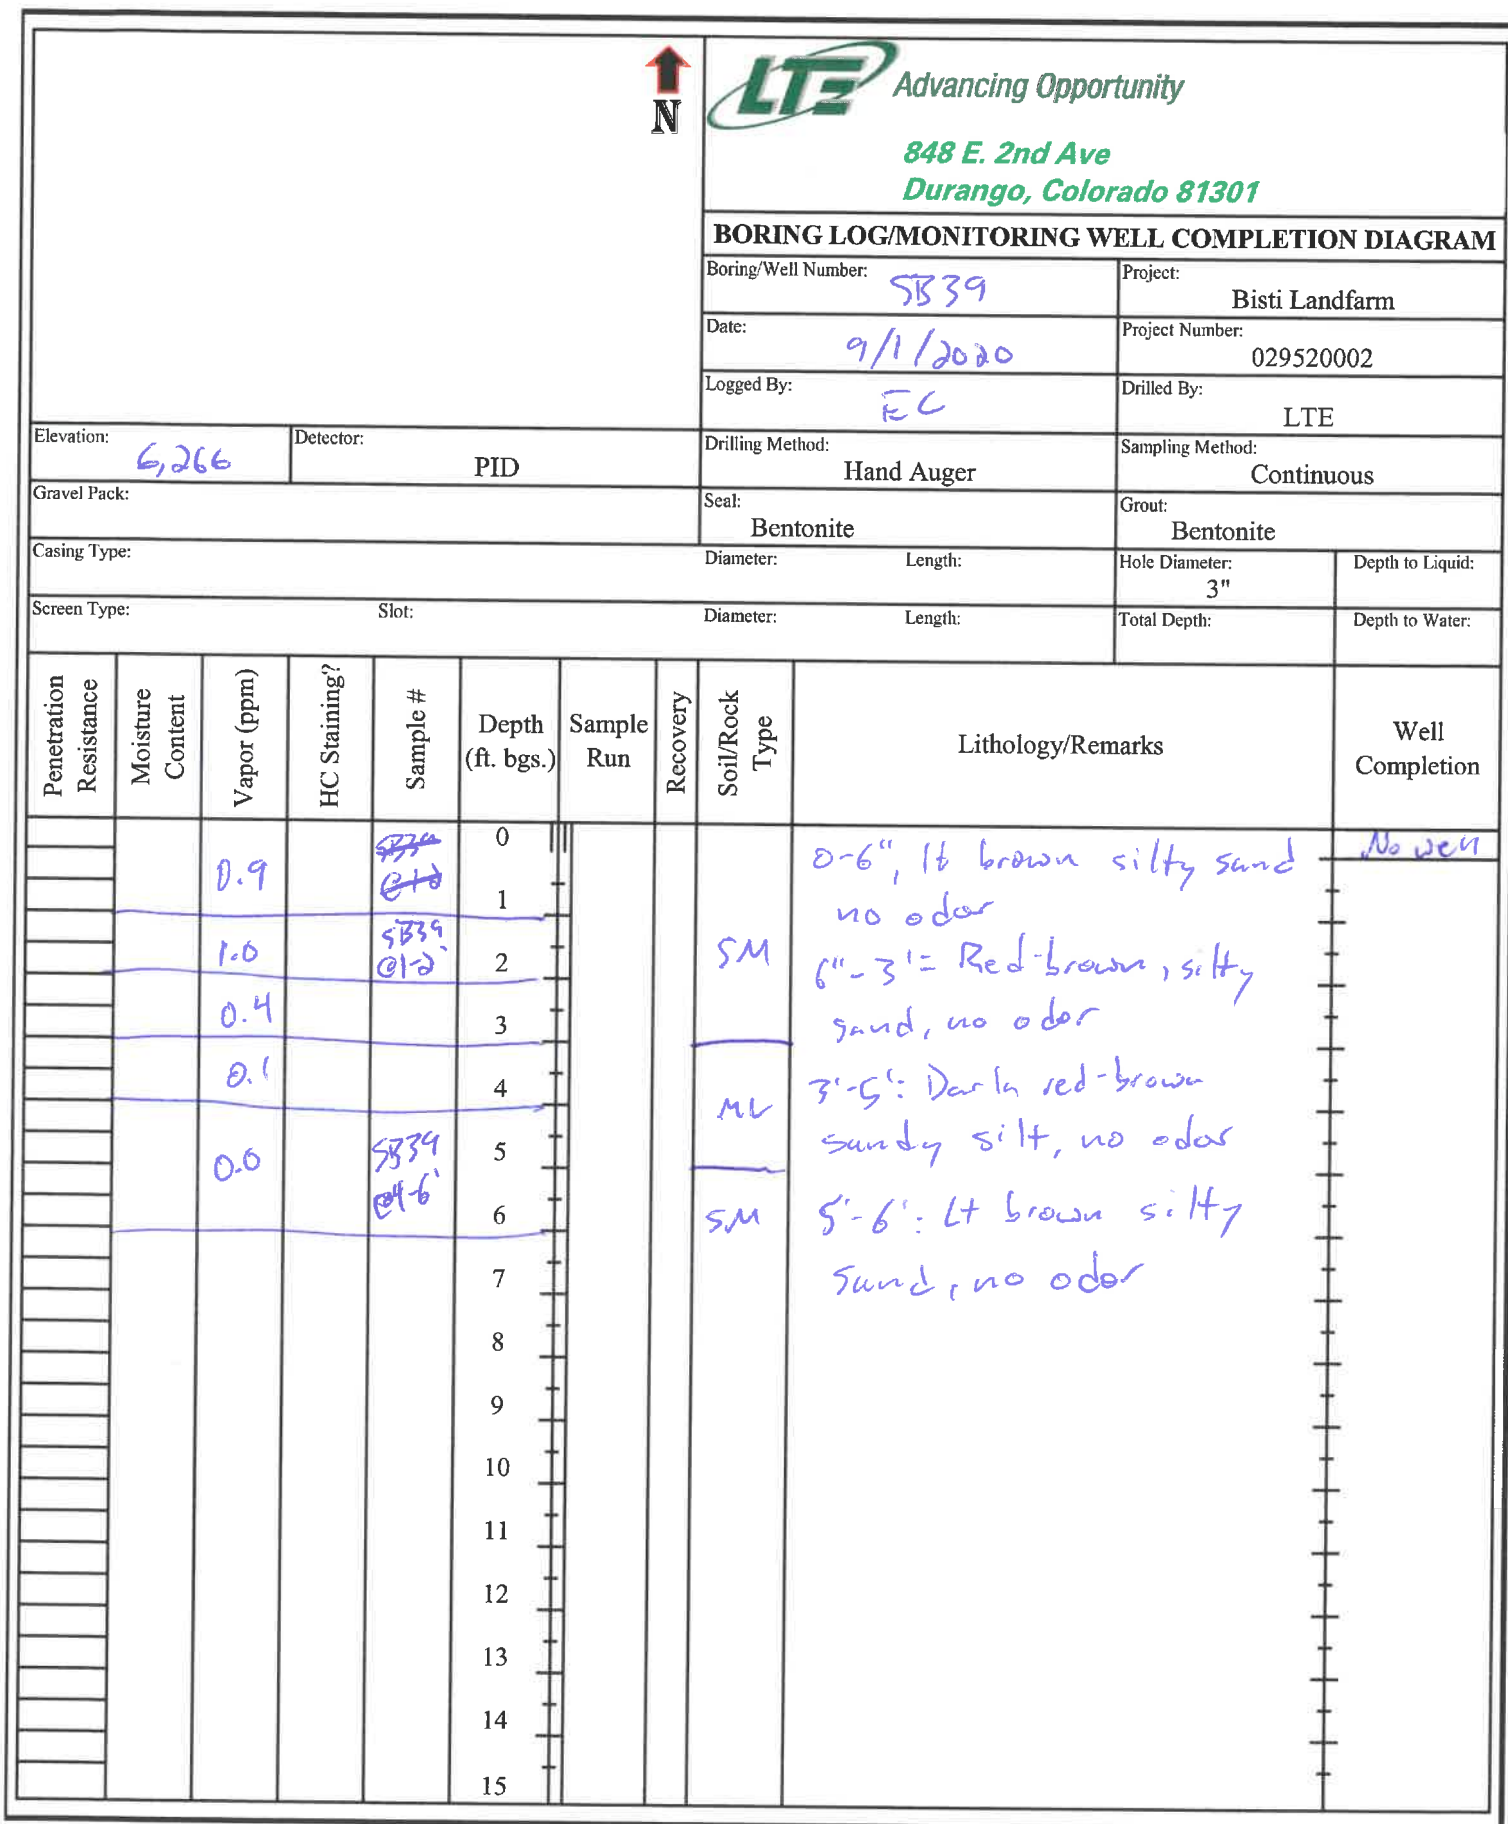 N
LTE Advancing Opportunity
848 E. 2nd Ave
Durango, Colorado 81301
BORING LOG/MONITORING WELL COMPLETION DIAGRAM
Boring/Well Number: SB39
Project: Bisti Landfarm
Date: 9/1/2020
Project Number: 029520002
Logged By: EC
Drilled By: LTE
Elevation: 6,266
Detector: PID
Drilling Method: Hand Auger
Sampling Method: Continuous
Gravel Pack:
Seal: Bentonite
Grout: Bentonite
Casing Type:
Diameter:
Length:
Hole Diameter: 3"
Depth to Liquid:
Screen Type:
Slot:
Diameter:
Length:
Total Depth:
Depth to Water:
Penetration Resistance
Moisture Content
Vapor (ppm)
HC Staining?
Sample #
Depth (ft. bgs.)
Sample Run
Recovery
Soil/Rock Type
Lithology/Remarks
Well Completion
0
No well
0.9
SB39
1
0-6", lt brown silty sand
no odor
1.0
SB39
@1-2'
2
SM
6"-3'= Red-brown, silty
sand, no odor
0.4
3
0.1
4
ML
3'-5': Dark red-brown
sandy silt, no odor
0.0
SB39
@4-6'
5
6
SM
5'-6': Lt brown silty
sand, no odor
7
8
9
10
11
12
13
14
15